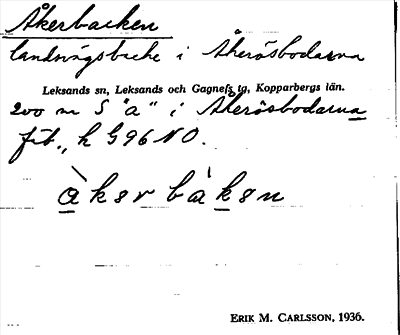 Åkerbacken
landsvägsbacke i Åkerösbodarna
Leksands sn, Leksands och Gagnefs tg, Kopparbergs län.
200 m S "a" i Åkerösbodarna
fäb., k G96NO.
àkər bàkən
ERIK M. CARLSSON, 1936.